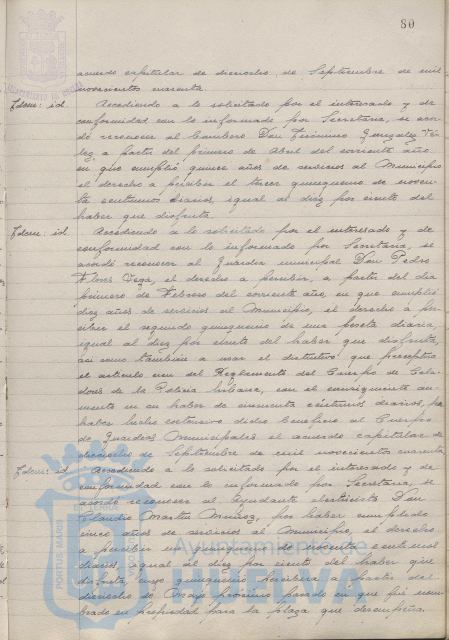 80
acuerdo capitular de dieciocho de Septiembre de mil
novecientos cuarenta.
Idem: id. Accediendo a lo solicitado por el interesado y de
conformidad con lo informado por Secretaría, se acor
dó reconocer al Bombero Don Jerónimo Gonzalez Vé
lez, a partir del primero de Abril del corriente año,
en que cumplió quince años de servicios al Municipio
el derecho a percibir el tercer quinquenio de noven
ta centimos diarios, igual al diez por ciento del
haber que disfruta.
Idem: id. Accediendo a lo solicitado por el interesado y de
conformidad con lo informado por Secretaría, se
acordó reconocer al Guardia municipal Don Pedro
Flores Vega, el derecho a percibir, a partir del dia
primero de Febrero del corriente año, en que cumplió
diez años de servicios al Municipio, el derecho a per
cibir el segundo quinquenio de una peseta diaria,
igual al diez por ciento del haber que disfruta,
asi como tambien a usar el distintivo que preceptúa
el artículo del Reglamento del Cuerpo de Cela
dores de la Policia Urbana, con el consiguiente au-
mento en su haber de cincuenta céntimos diarios, por
haber hecho extensivo dicho beneficio al Cuerpo
de Guardias Municipales el acuerdo capitular de
dieciocho de Septiembre de mil novecientos cuarenta.
Idem: id. Accediendo a lo solicitado por el interesado y de
conformidad con lo informado por Secretaría, se
acordó reconocer al Ayudante electricista Don
Claudio Martin Muñoz, por haber cumplido
cinco años de servicios al Municipio, el derecho
a percibir un quinquenio de noventa centimos
diarios, igual al diez por ciento del haber que
disfruta, cuyo quinquenio percibirá a partir del
dieciocho de Mayo próximo pasado en que fué nom
brado en propiedad para la plaza que desempeña.
Ayuntamiento de
HUELVA
PORTUS MARIS